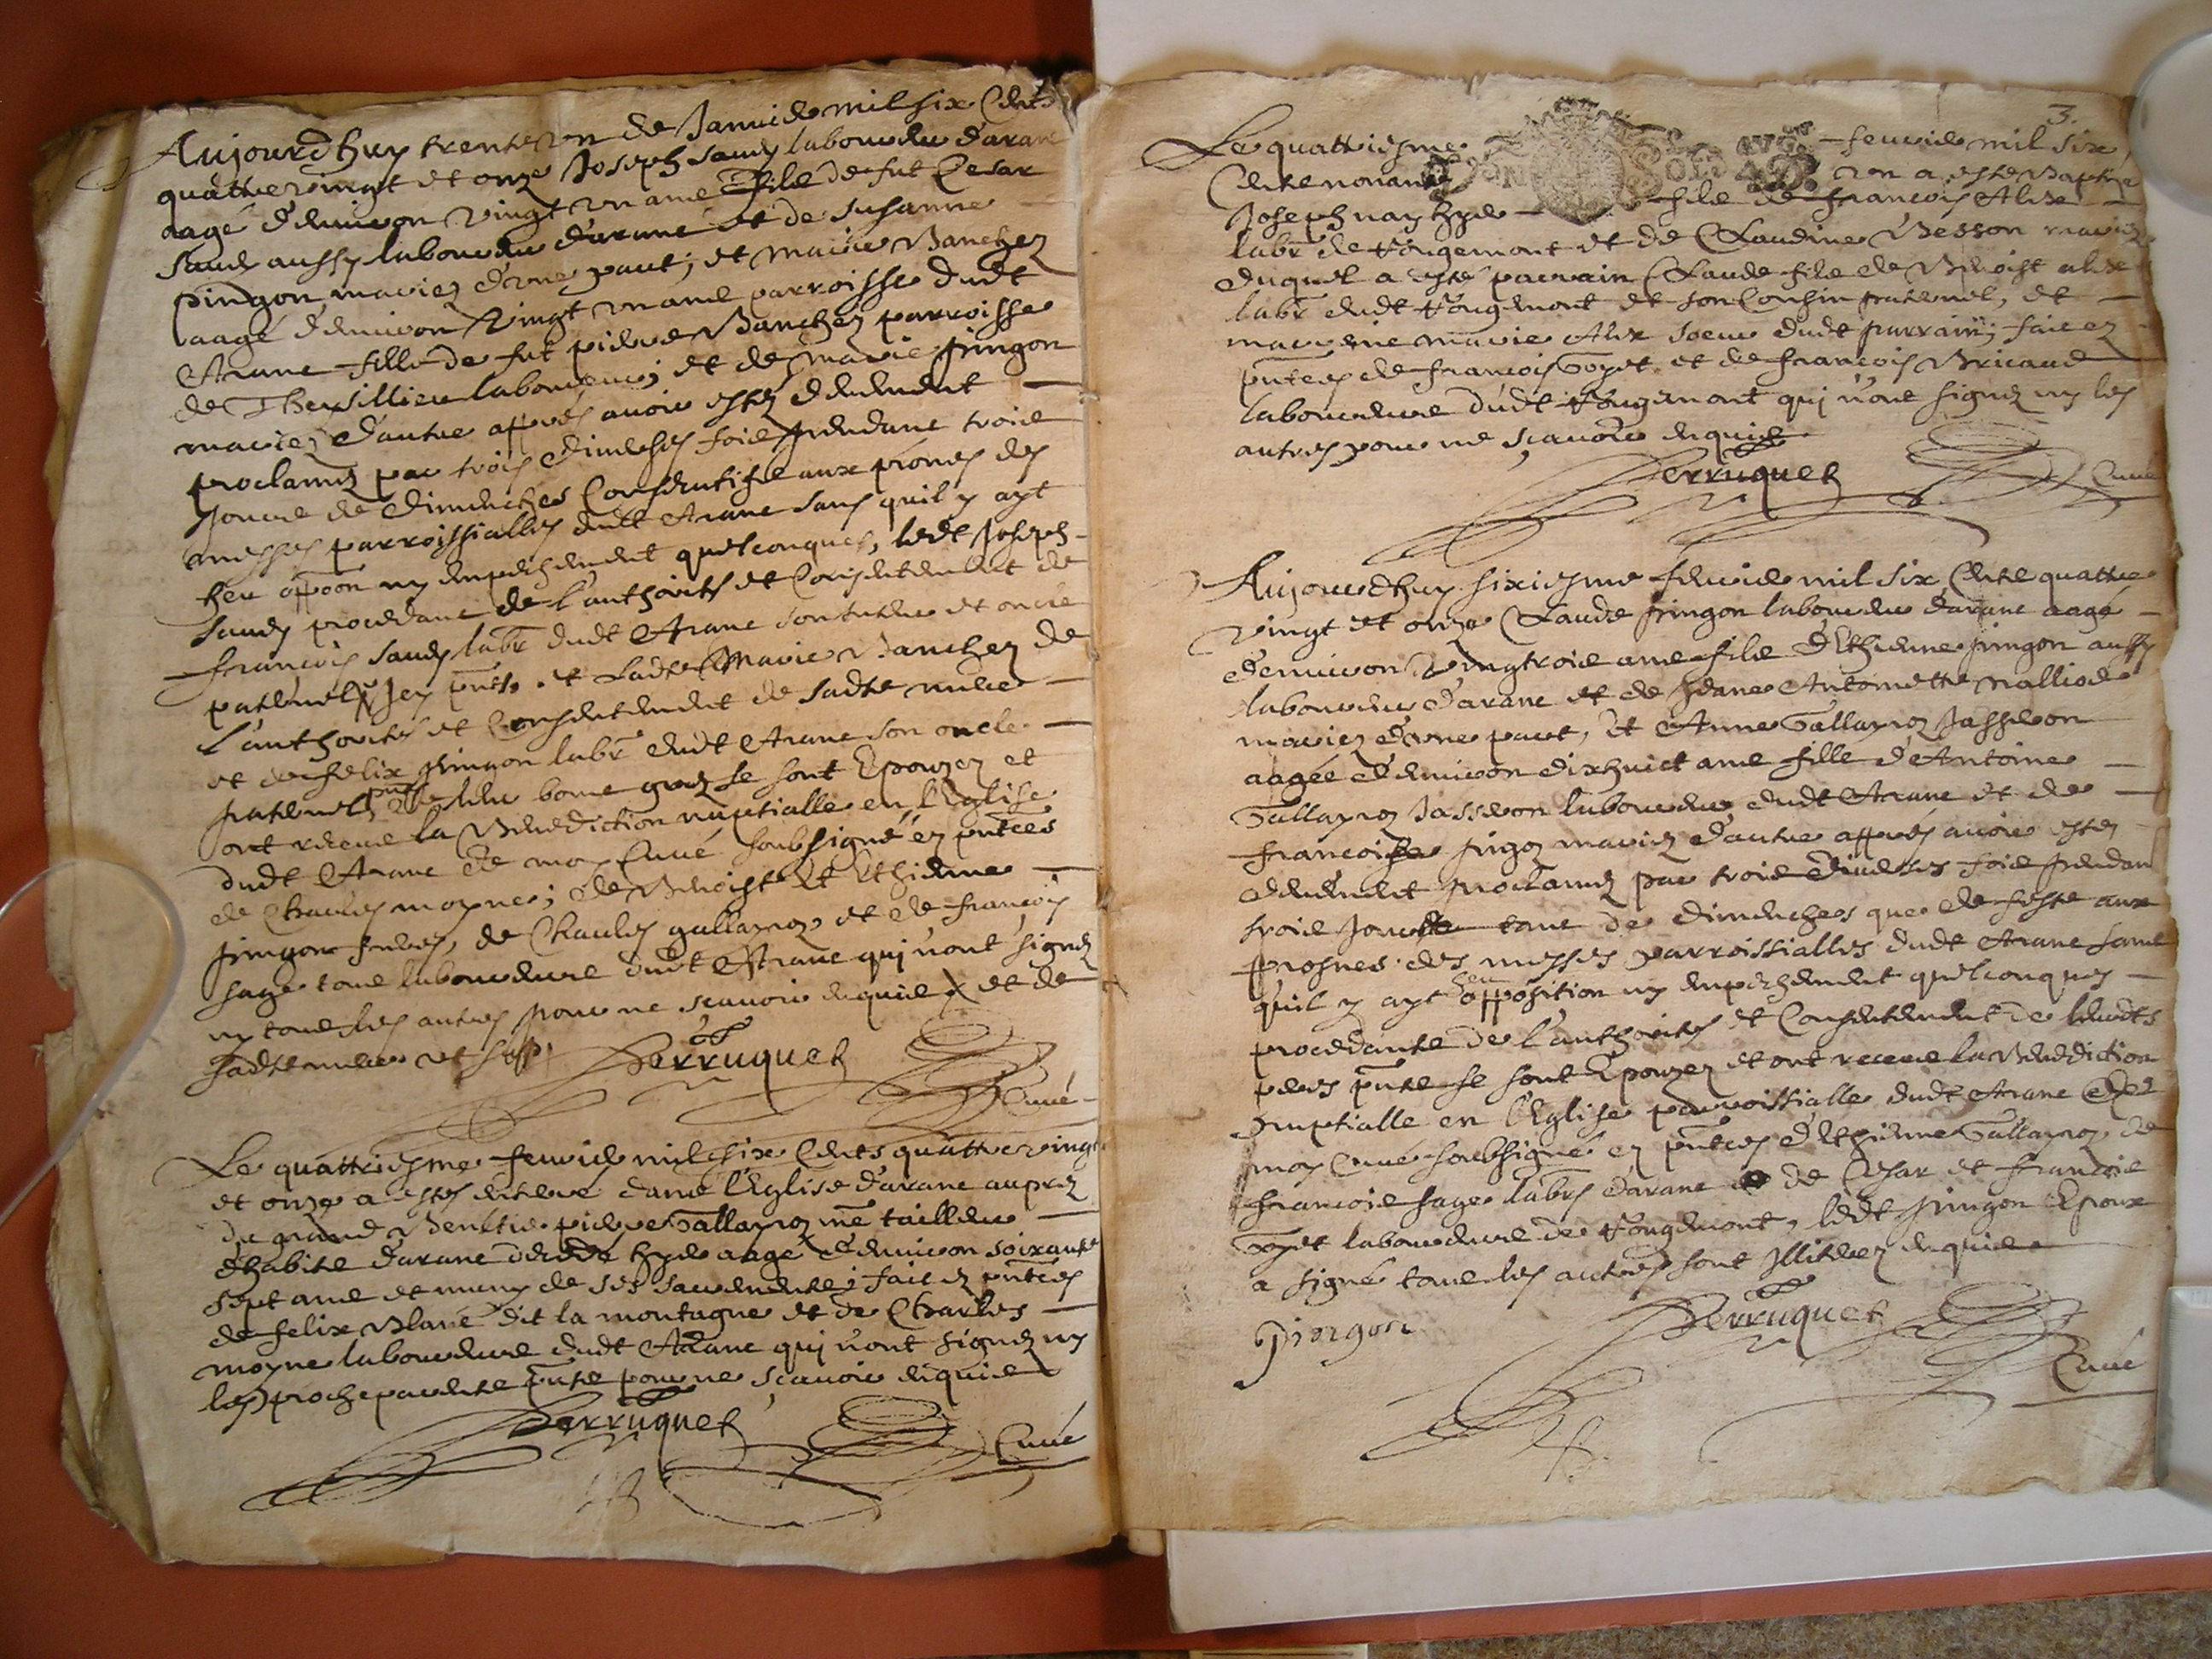 Aujourdhuy trente un de Janvier mil six Cents
quattre vingt et onze Joseph savey laboureur d'arane
aagé d'environ vingt un ans fils de fut Cesar
savey aussy laboureur d'arane et de susanne
pingon mariez d'une part; et marie Banchez
aagé d'environ vingt un ans parroisse dudt
Arane fille de fut pierre Banchez parroisse
de laboureur; et de marie pingon
mariez d'autre apprés avoir estez deuement
proclamez par trois diverses fois pendant trois
Jours de dimenches Consecutifs aux prones des
messes parroissialles dudt Arane sans quil y ayt
heu oppoon ny empeschement quelconques, ledt Joseph
savey procedant de l'authorité et Consentement de
françois savey labr dudt Arane son et oncle
paternel Icy pnts. et Ladte Marie Banchez de
l'authorité et Consentement de sadte mere
et de felix pingon labr dudt Arane son oncle
paternel pnt de leur bonne grez se sont Epouzez et
ont receue la Benediction nuptialle en l'Eglise
dudt Arane de moy Curé soubsigné ez pntces
de Charles moyne; de Benoist et Ethienne
pingon freres, de Charles gallayroz et de françois
sage tous laboureurs dudt Arane qui n'ont signez
ny tous les autres pour ne scavoir enquis et de
sadte mere
Perruquet
Curé
Le quattriesme fevrier mil six Cents quattre vingt
et onze a estez enterre dans l'Eglise d'arane auprez
du grand Benitie pierre Gallayroz me tailleur
d'habits d'arane decede hyer aagé d'environ soixante
sept ans et muny de ses sacrements; fait ez pntces
de felix Blanc dit la montagne et de Charles
moyne laboureurs dudt Arane qui n'ont signez ny
les proche parents pnts pour ne sçavoir enquis
Perruquet
Curé
3.
Le quattriesme fevrier mil six
Cents nonante un a esté Baptizé
Joseph nay hyer fils de françois Alix
labr de Rougemont et de Claudine Besson mariez
duquel a esté parrain Claude fils de Benoist alix
labr dudt Rougemont et son Cousin paternel, et
marrene marie Alix soeur dudt parrain; fait ez
pntces de françois Goyet et de françois Bricaud
laboureurs dudt Rougemont qui n'ont signez ny les
autres pour ne sçavoir enquis
Perruquet
Curé
Aujourdhuy sixiesme fevrier mil six Cents quattre
vingt et onze Claude pingon laboureur d'arane aagé
d'environ vingtrois ans fils d'Ethienne pingon aussy
laboureur d'arane et de Jeane Antoinette
mariez d'une part, et Anne Gallayroz Jasseron
aagée d'environ dixhuict ans fille d'Antoine
Gallayroz Jasseron laboureur dudt Arane et de
françoise pingoz mariez d'autre apprés avoir estez
deuement proclamez par trois diverses fois pendan
trois Jours tant de dimenches que de feste aux
prosnes des messes parroissialles dudt Arane sans
quil y ayt heu opposition ny empeschement quelconques
procedants de l'authorité et Consentement de leurdts
peres pnts se sont Epouzez et ont receue la Benediction
nuptialle en l'Eglise parroissialle dudt Arane de
moy Curé soubsigné ez pntces d'Ethienne Gallayroz de
françois sage labrs d'arane de Cesar et françois
goyet laboureurs de Rougemont, ledt pingon Epoux
a signé tous les autres sont Illiterez enquis
Pingon
Perruquet
Curé